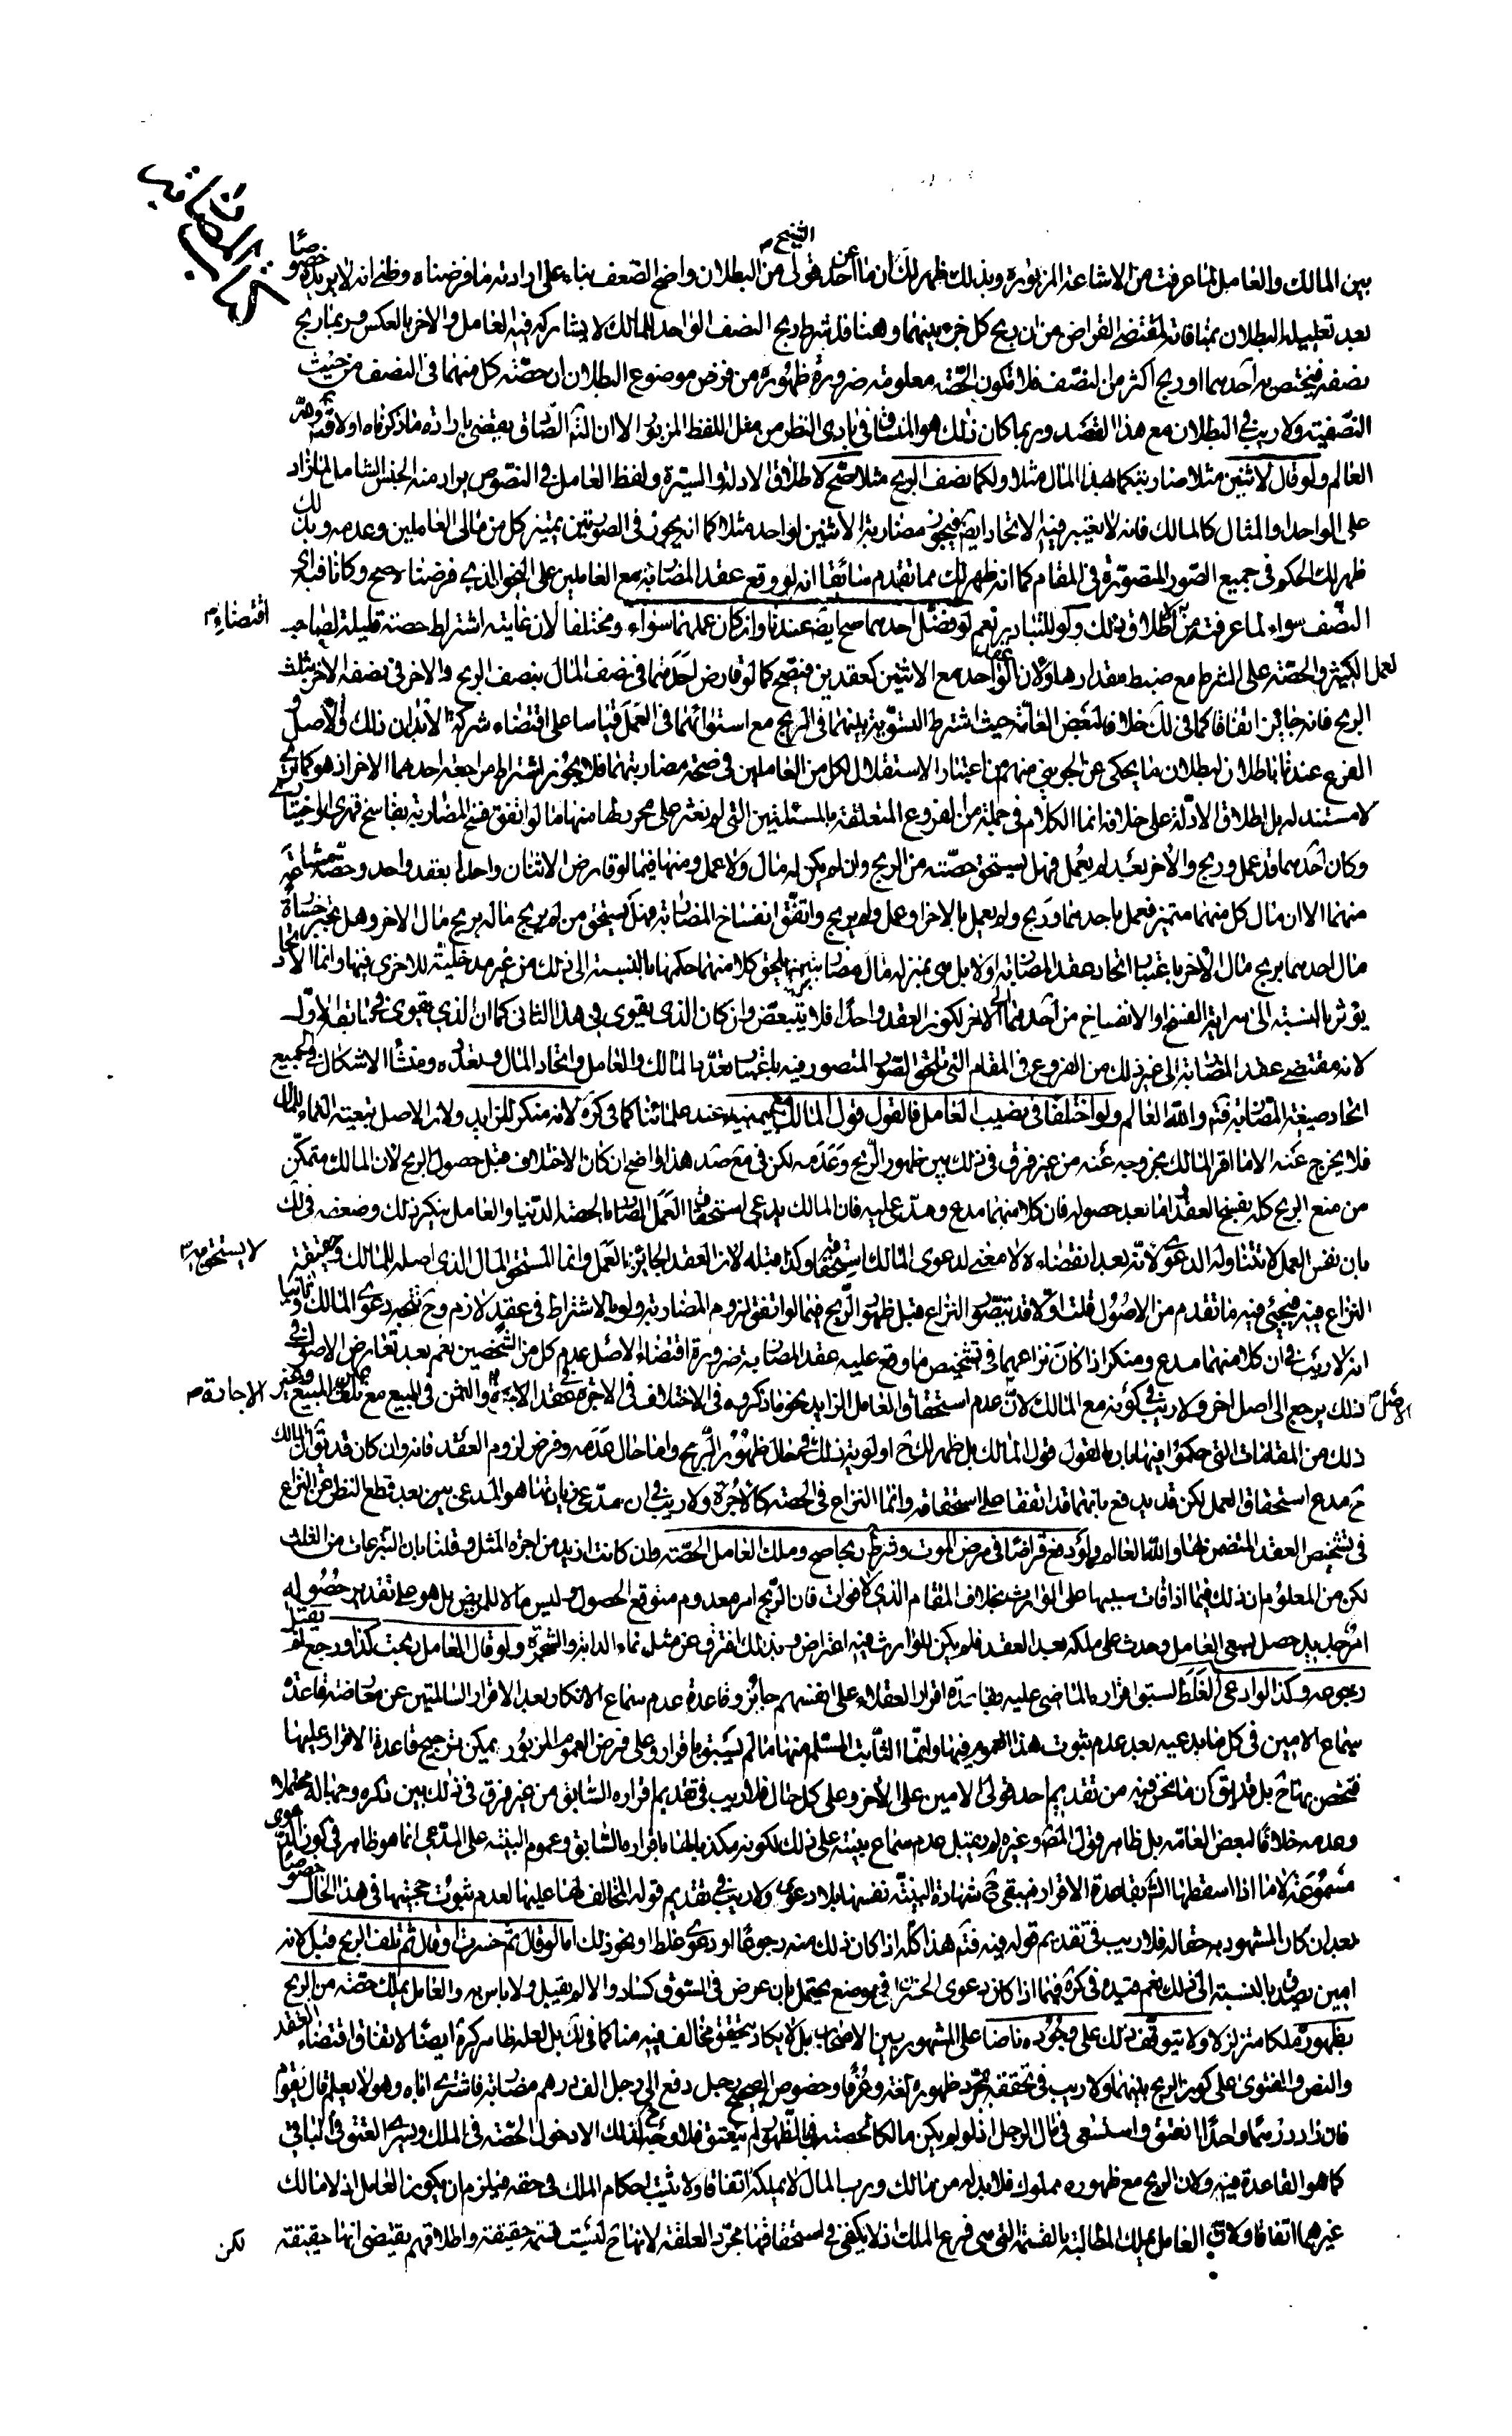 كتاب المضاربة
بين المالك والعامل لما عرفت من الاشاعة المزبورة وبذلك ظهر لك ان ما عن احد قولى الشيخ من البطلان واضح الضعف بناء على ارادته ما فرضناه وظنى انه لا يريده خصوصا
بعد تعليله البطلان بمنافاته لمقتضى القراض من ان ربح كل جزء بينهما وهنا قد شرط ربح النصف الواحد للمالك لا يشاركه فيه العامل والاخر بالعكس وربما ربح
نصفه فيختص به احدهما او ربح اكثر من النصف فلا تكون الحصة معلومة ضرورة ظهوره من فرض موضوع البطلان ان حصة كل منهما فى النصف من حيث
النصفية ولا ريب فى البطلان مع هذا القصد وربما كان ذلك هو المنساق فى بادى النظر من مثل اللفظ المزبور الا ان التأمل الصادق يقتضى بارادة ما ذكرناه اولا فتأمل والله
العالم ولو قال لاثنين مثلا ضاربتكما بهذا المال مثلا ولكما نصف الربح مثلا صح لاطلاق الادلة والسيرة ولفظ العامل فى النصوص يراد منه الجنس الشامل لما زاد
على الواحد والمثال كالمالك فانه لا يعتبر فيه الاتحاد ايضا فيجوز مضاربة الاثنين لواحد مثلا كما انه يجوز فى الصورتين تميز كل من مالى العاملين وعدمه وبذلك
ظهر لك الحكم فى جميع الصور المتصورة فى المقام كما انه ظهر لك مما تقدم سابقا انه لو وقع عقد المضاربة مع العاملين على النحو الذى فرضنا صح وكانا فيه اى
النصف سواء لما عرفته من اقتضاء الاطلاق ذلك ولو للتبادر نعم لو فضل احدهما صح ايضا عندنا وان كان عملهما سواء ومختلفا لان غايته اشتراط حصة قليلة لصاحب
العمل الكثير والحصة على الشرط مع ضبط مقدارها ولان عقد الواحد مع الاثنين كعقدين فيصح كما لو قارض احدهما فى نصف المال بنصف الربح والاخر فى نصفه الاخر بثلث
الربح فانه جايز اتفاقا كما فى لك خلافا لبعض العامة حيث اشترط التسوية بينهما فى الربح مع استوائهما فى العمل قياسا على اقتضاء شركة الابدان ذلك والاصل و
الفرع عندنا باطلان لبطلان ما يحكى عن الجوينى منهم من اعتبار الاستقلال لكل من العاملين فى صحة مضاربتهما فلا يجوز اشتراط مراجعة احدهما الاخر اذ هو كما ترى
لا مستند له بل اطلاق الادلة على خلافه انما الكلام فى جملة من الفروع المتعلقة بالمسئلتين التى لم نعثر على محرر لها منها ما لو اتفق فسخ المضاربة بفاسخ قهرى او اختيارى
وكان احدهما قد عمل وربح والاخر بعد لم يعمل فهل يستحق حصته من الربح وان لم يكن له مال ولا عمل ومنها فيما لو قارض الاثنان واحدا بعقد واحد وحصة مشاعة
منهما الا ان مال كل منهما متميز فعمل باحدهما وربح ولم يعمل بالاخر او عمل ولم يربح واتفق انفساخ المضاربة فهل يستحق من لم يربح ماله بربح مال الاخر وهل تجبر خسارة
مال احدهما بربح مال الاخر باعتبار اتحاد عقد المضاربة او لا بل هى بمنزلة مال مضاربتين فيلحق كلا منهما حكمها بالنسبة الى ذلك من غير مدخلية للاخرى فيها وانما الاتحاد
يؤثر بالنسبة الى سراية الفسخ او الانفساخ من احدهما الى الاخر لكون العقد واحدا فلا يتبعض وان كان الذى يقوى فى هذا الثانى كما ان الذى يقوى فى سابقه الاول
لانه مقتضى عقد المضاربة الى غير ذلك من الفروع فى المقام التى تلحق الصور المتصور فيه باعتبار تعدد المالك والعامل واتحاد المال وتعدده ومنشأ الاشكال فى الجميع
اتحاد صيغة المضاربة فتأمل والله العالم ولو اختلفا فى نصيب العامل فالقول قول المالك مع يمينه عند علمائنا كما فى كرة لانه منكر للزايد ولان الاصل تبعية النماء للمال
فلا يخرج عنه الا ما اقر المالك بخروجه عنه من غير فرق فى ذلك بين ظهور الربح وعدمه لكن فى مع صد هذا واضح ان كان الاختلاف قبل حصول الربح لان المالك متمكن
من منع الربح كله بفسخ العقد اما بعد حصوله فان كلا منهما مدع ومدعى عليه فان المالك يدعى استحقاق العمل الصادر بالحصة الدنيا والعامل ينكر ذلك وضعفه فى لك
بان نفس العمل لا تتناوله الدعوى لانه بعد انقضاءه لا معنى لدعوى المالك استحقاقه وكذا قبله لان العقد الجايز لا يستحق به العمل وانما المستحق المال الذى اصله للمالك وحقيقة
النزاع فيه فيجيئ فيه ما تقدم من الاصول قلت اولا قد يتصور النزاع قبل ظهور الربح فيما لو اتفق لزوم المضاربة ولو بالاشتراط فى عقد لازم وح تتجه دعوى المالك وثانيا
انه لا ريب فى ان كلا منهما مدع ومنكر اذا كان نزاعهما فى تشخيص ما وقع عليه عقد المضاربة ضرورة اقتضاء الاصل عدم كل من الشخصين نعم بعد تعارض الاصول فى
ذلك يرجع الى اصل اخر ولا ريب فى كونه مع المالك لان الاصل عدم استحقاق العامل الزايد نحو ما ذكروه فى الاختلاف فى الاجرة فى عقد الاجارة والثمن فى المبيع مع تلف المبيع وغير
ذلك من المقامات التى حكموا فيها بان القول قول المالك بل ظهر لك ح اولوية ذلك فى حال ظهور الربح واما حال عدمه وفرض لزوم العقد فانه وان كان قد يق ان المالك
ح مدع استحقاق العمل لكن قد يدفع بانهما قد اتفقا على استحقاقه وانما النزاع فى الحصة كالاجرة ولا ريب فى ان مدعى زيادتها هو المدعى بعد قطع النظر عن النزاع
فى تشخيص العقد المتضمن لها والله العالم ولو دفع قراضا فى مرض الموت وشرط ربحا صح وملك العامل الحصة وان كانت ازيد من اجرة المثل وقلنا بان التبرعات من الثلث
لكن من المعلوم ان ذلك فيما اذا فات بسببها على الوارث بخلاف المقام الذى لا فوات فان الربح امر معدوم متوقع الحصول وليس مالا للمريض بل هو على تقدير حصوله
امر جديد حصل بسعى العامل وحدث على ملكه بعد العقد فلم يكن للوارث فيه اعتراض وبذلك افترق عن مثل نماء الدابة والشجرة ولو قال العامل ربحت كذا ورجع لم يقبل
رجوعه وكذا لو ادعى الغلط لسبق اقراره الماضى عليه بقاعدة اقرار العقلاء على انفسهم جائز وقاعدة عدم سماع الانكار بعد الاقرار السالمتين عن معارضة قاعدة
سماع الامين فى كل ما يدعيه بعد عدم ثبوت هذا العموم فيها وانما الثابت المسلم منها ما لم يسبق باقرار وعلى فرض العموم المزبور يمكن ترجيح قاعدة الاقرار عليها
فتخص بها ح بل قد يق ان ما نحن فيه من تقديم احد قولى الامين على الاخر وعلى كل حال فلا ريب فى تقديم اقراره السابق من غير فرق فى ذلك بين ذكره وجها له محتملا
وعدمه خلافا لبعض العامة بل ظاهر قول المص وغيره لم يقبل عدم سماع بينته على ذلك لكونه مكذبا لها باقراره السابق وعموم البينة على المدعى انما هو ظاهر فى كون الدعوى
مسموعة لا ما اذا اسقطها الشارع بقاعدة الاقرار فيبقى ح شهادة البينة نفسها بلا دعوى ولا ريب فى تقديم قوله المخالف لها عليها لعدم ثبوت حجيتها فى هذا الحال خصوصا
بعد ان كان المشهود به حقا له فلا ريب فى تقديم قوله فيه فتأمل هذا كله اذا كان ذلك منه رجوعا او دعوى غلط او نحو ذلك اما لو قال ثم خسرت او قال ثم تلف الربح قبل لانه
امين يصدق بالنسبة الى ذلك نعم قيده فى كرة فيما اذا كان دعوى الخسران فى موضع يحتمل بان عرض فى السوق كساد والا لم يقبل ولا باس به والعامل يملك حصته من الربح
بظهوره ملكا متزلزلا ولا يتوقف ذلك على وجوده ناضا على المشهور بين الاصحاب بل لا يكاد يتحقق مخالف فيه منا كما فى لك بل لعله ظاهر كرة ايضا لاتفاق اقتضاء العقد
والنص والفتوى على كون الربح بينهما ولا ريب فى تحققه بمجرد ظهوره لغة وعرفا وخصوص الصحيح رجل دفع الى رجل الف درهم مضاربة فاشترى اباه وهو لا يعلم قال يقوم
فان زاد درهما واحدا انعتق واستسعى فى مال الرجل اذ لو لم يكن مالكا لحصته بالظهور لم ينعتق فلا وجه لذلك الا دخول الحصة فى الملك ويسرى العتق فى الباقى
كما هو القاعدة فيه ولان الربح مع ظهوره مملوك فلا بد له من مالك ورب المال لا يملكه اتفاقا ولا تثبت احكام الملك فى حقه فيلزم ان يكون العامل اذ لا مالك
غيرهما اتفاقا ولان العامل يملك المطالبة بالقسمة التى هى فرع الملك اذ لا يكفى فى استحقاقها مجرد العلقة لانها ح ليست قسمة حقيقة واطلاقهم يقتضى انها حقيقة
لكن